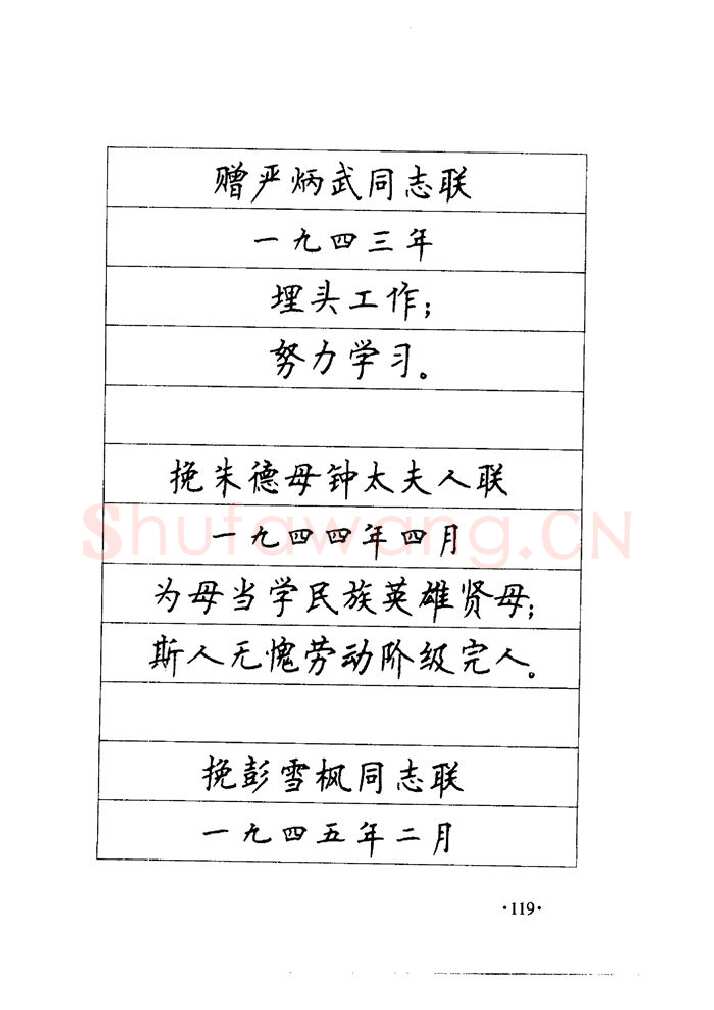 赠严炳武同志联
一九四三年
埋头工作；
努力学习。
挽朱德母钟太夫人联
一九四四年四月
为母当学民族英雄贤母；
斯人无愧劳动阶级完人。
挽彭雪枫同志联
一九四五年二月
·119·
Shufawang.CN